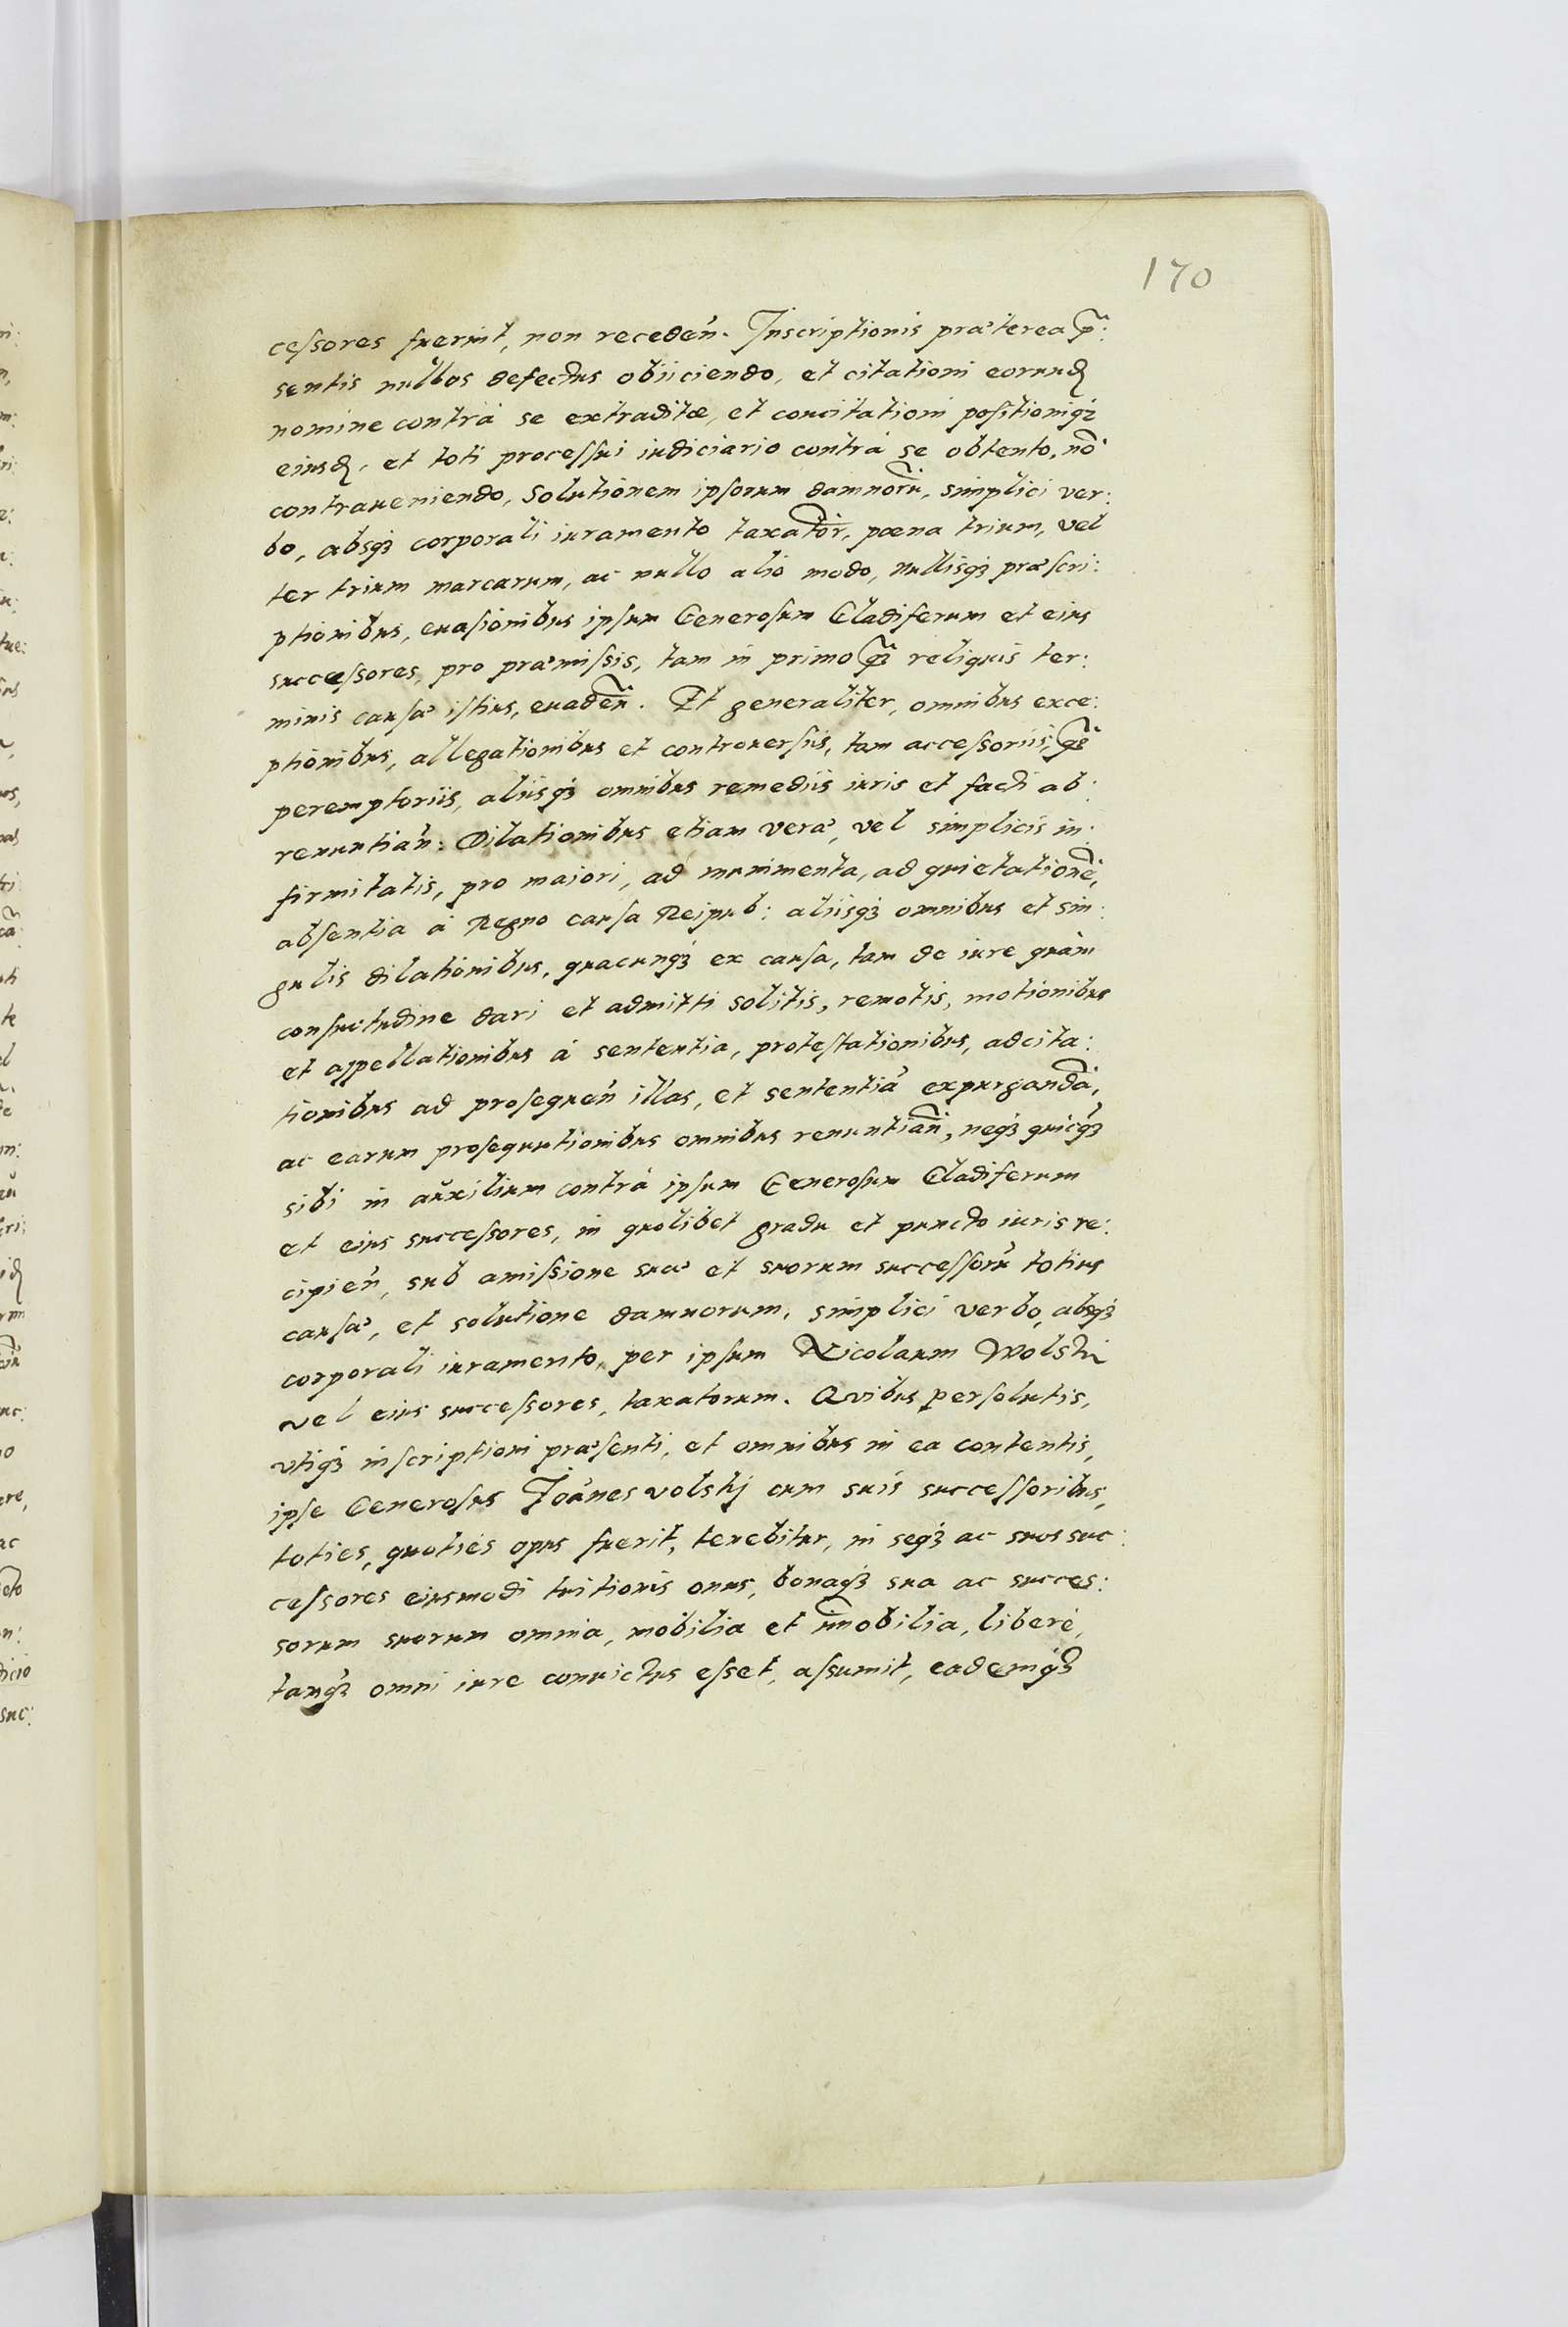 170
cessores fuerint, non receden̄. Inscriptionis præterea p̃:
sentis nullos defectus obiiciendo, et citationi eorund
nomine contrà se extraditæ, et concitationi positioniqȝ
eiusd, et toti processui iudiciario contrà se obtento, nõ
contraueniendo, Solutionem ipsorum damnorũ, simplici ver:
bo, absqȝ corporali iuramento taxator̃, pœna trium, vel
ter trium marcarum, ac nullo alio modo, nullisqȝ præscri:
ptionibus, euasionibus ipsum Generosum Gladiferum et eius
successores, pro præmissis, tam in primo qȝ reliquis ter:
minis causæ istius, euadeñ. Et generaliter, omnibus exce:
ptionibus, allegationibus et controuersiis, tam accessoriis, qȝ
peremptoriis, aliisqȝ omnibus remediis iuris et facti ab:
renuntiañ: Dilationibus etiam veræ, vel simplicis in:
firmitatis, pro maiori, ad munimenta, ad quietationẽ,
absentia à Regno causa Reipub: aliisqȝ omnibus et sin:
gulis dilationibus, quacunqȝ ex causa, tam de iure quàm
consuetudine dari et admitti solitis, remotis, motionibus
et appellationibus à sententia, protestationibus, adcita:
tionibus ad prosequeñ illas, et sententiã expurgandã,
ac earum prosequutionibus omnibus renuntiañ, neqȝ quicqȝ
sibi in auxilium contrà ipsum Generosum Gladiferum
et eius successores, in quolibet gradu et puncto iuris re:
cipieñ, sub amissione suæ et suorum successorũ totius
causæ, et solutione damnorum, simplici verbo, absqȝ
corporali iuramento, per ipsum Nicolaum Wolski
vel eius successores, taxatorum. Quibus persolutis,
vtiqȝ inscriptioni præsenti, et omnibus in ea contentis,
ipse Generosus Joãnes volskj cum suis successoribus,
toties, quoties opus fuerit, tenebitur, in seqȝ ac suos suc:
cessores eiusmodi tuitionis onus, bonaqȝ sua ac succes:
sorum suorum omnia, mobilia et im̃obilia, liberè,
tanqȝ omni iure conuictus esset, assumit, eademqȝ